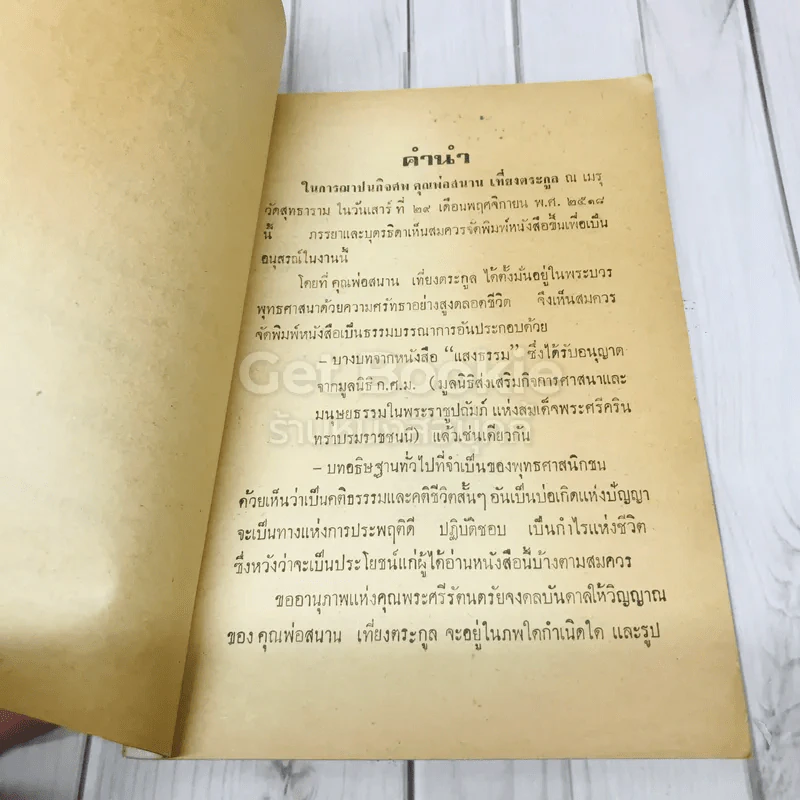 คำนำ
ในการฌาปนกิจศพ คุณพ่อสนาน เที่ยงตระกูล ณ เมรุ
วัดสุทธาราม ในวันเสาร์ ที่ ๒๙ เดือนพฤศจิกายน พ.ศ. ๒๕๑๘
นี้ ภรรยาและบุตรธิดาเห็นสมควรจัดพิมพ์หนังสือขึ้นเพื่อเป็น
อนุสรณ์ในงานนี้
โดยที่ คุณพ่อสนาน เที่ยงตระกูล ได้ตั้งมั่นอยู่ในพระบวร
พุทธศาสนาด้วยความศรัทธาอย่างสูงตลอดชีวิต จึงเห็นสมควร
จัดพิมพ์หนังสือเป็นธรรมบรรณาการอันประกอบด้วย
– บางบทจากหนังสือ “แสงธรรม” ซึ่งได้รับอนุญาต
จากมูลนิธิ ก.ศ.ม. (มูลนิธิส่งเสริมกิจการศาสนาและ
มนุษยธรรมในพระราชูปถัมภ์ แห่งสมเด็จพระศรีคริน
ทราบรมราชชนนี) แล้วเช่นเดียวกัน
– บทอธิษฐานทั่วไปที่จำเป็นของพุทธศาสนิกชน
ด้วยเห็นว่าเป็นคติธรรรมและคติชีวิตสั้นๆ อันเป็นบ่อเกิดแห่งปัญญา
จะเป็นทางแห่งการประพฤติดี ปฏิบัติชอบ เป็นกำไรแห่งชีวิต
ซึ่งหวังว่าจะเป็นประโยชน์แก่ผู้ได้อ่านหนังสือนี้บ้างตามสมควร
ขออานุภาพแห่งคุณพระศรีรัตนตรัยจงดลบันดาลให้วิญญาณ
ของ คุณพ่อสนาน เที่ยงตระกูล จะอยู่ในภพใดกำเนิดใด และรูป
Get Bookie